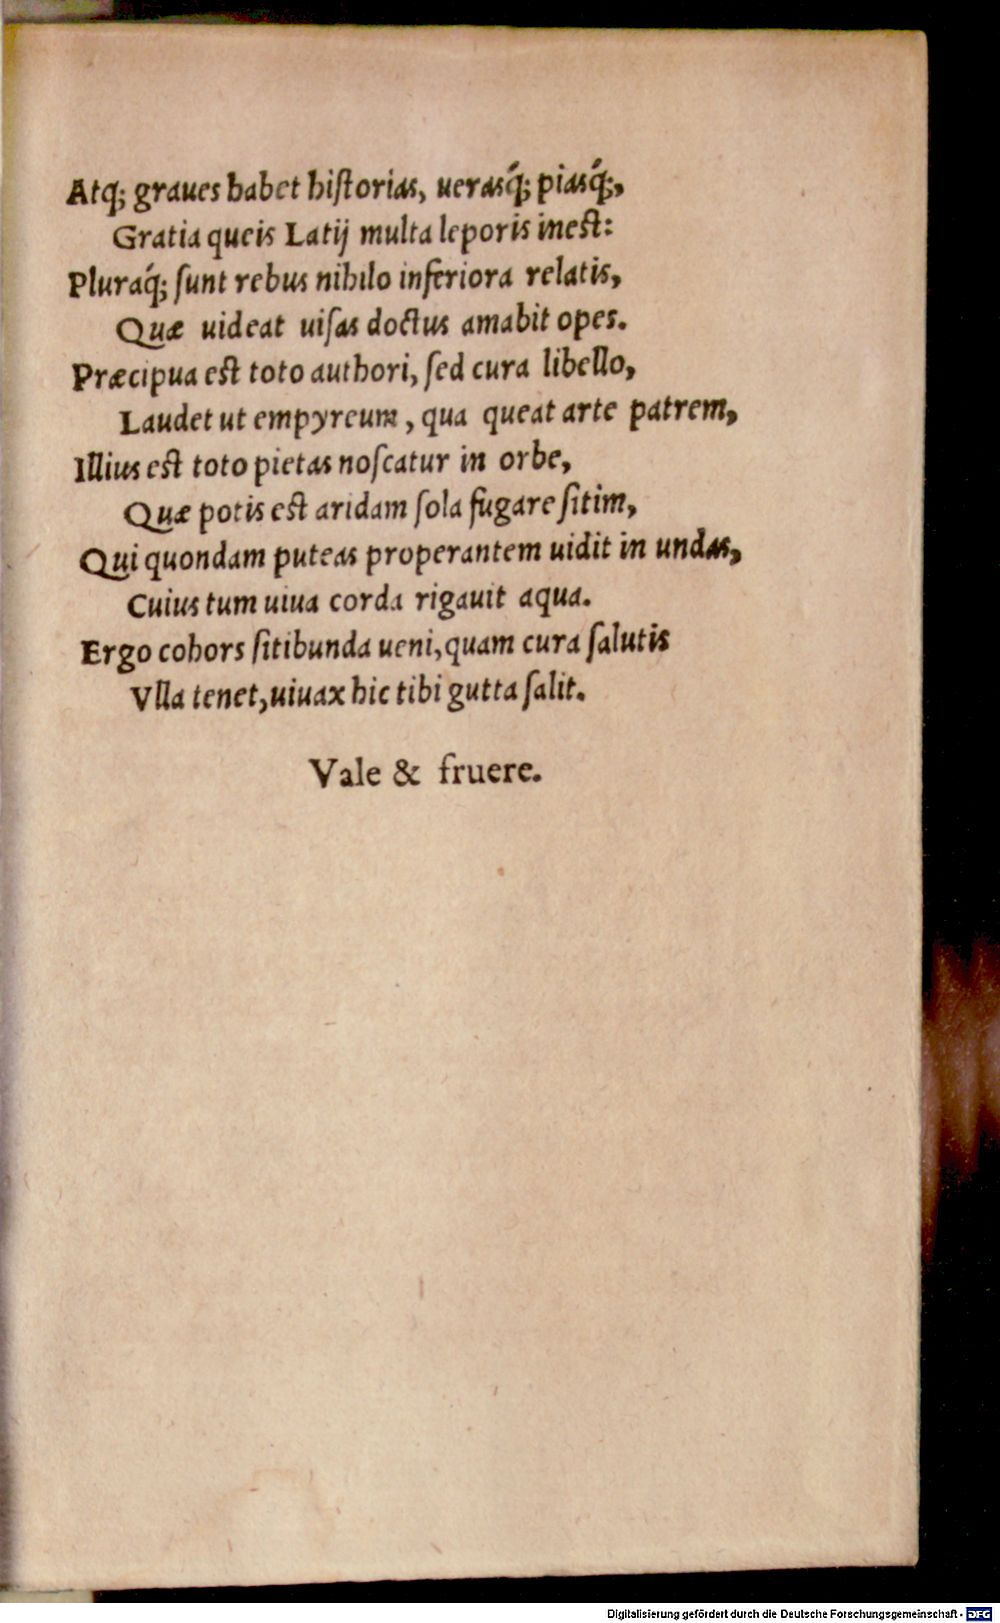 Atq́; graues habet hiſtorias, uerasq́; piasq́;,
Gratia queis Latij multa leporis ineſt:
Pluraq́; ſunt rebus nihilo inferiora relatis,
Quæ uideat uiſas doctus amabit opes.
Præcipua eſt toto authori, ſed cura libello,
Laudet ut empyreum, qua queat arte patrem,
Illius eſt toto pietas noſcatur in orbe,
Quæ potis eſt aridam ſola fugare ſitim,
Qui quondam puteas properantem uidit in undas,
Cuius tum uiua corda rigauit aqua.
Ergo cohors ſitibunda ueni, quam cura ſalutis
Vlla tenet, uiuax hic tibi gutta ſalit.
Vale & fruere.
Digitalisierung gefördert durch die Deutsche Forschungsgemeinschaft - DFG